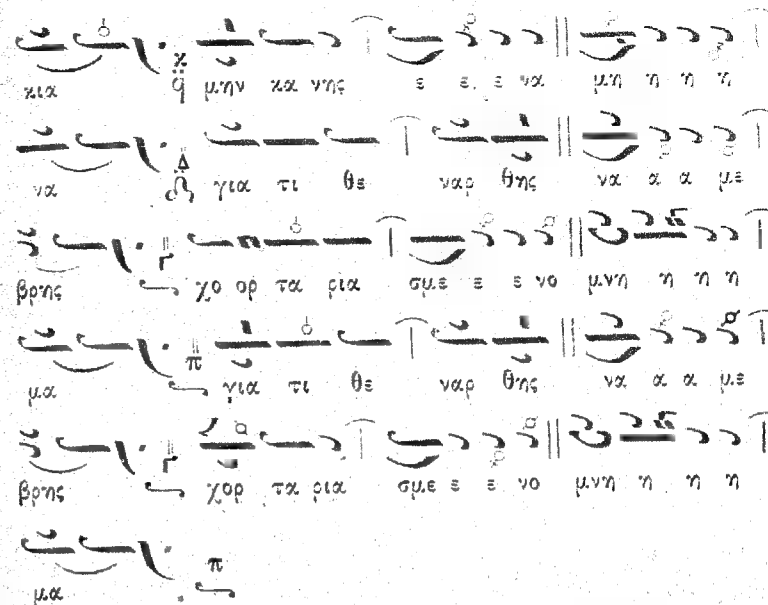 κια μην κα νης ε ε ε να μη η η η
να για τι θε ναρ θης να α α με
βρης χο ορ τα ρια σμε ε ε νο μνη η η η
μα για τι θε ναρ θης να α α με
βρης χορ τα ρια σμε ε ε νο μνη η η η
μα